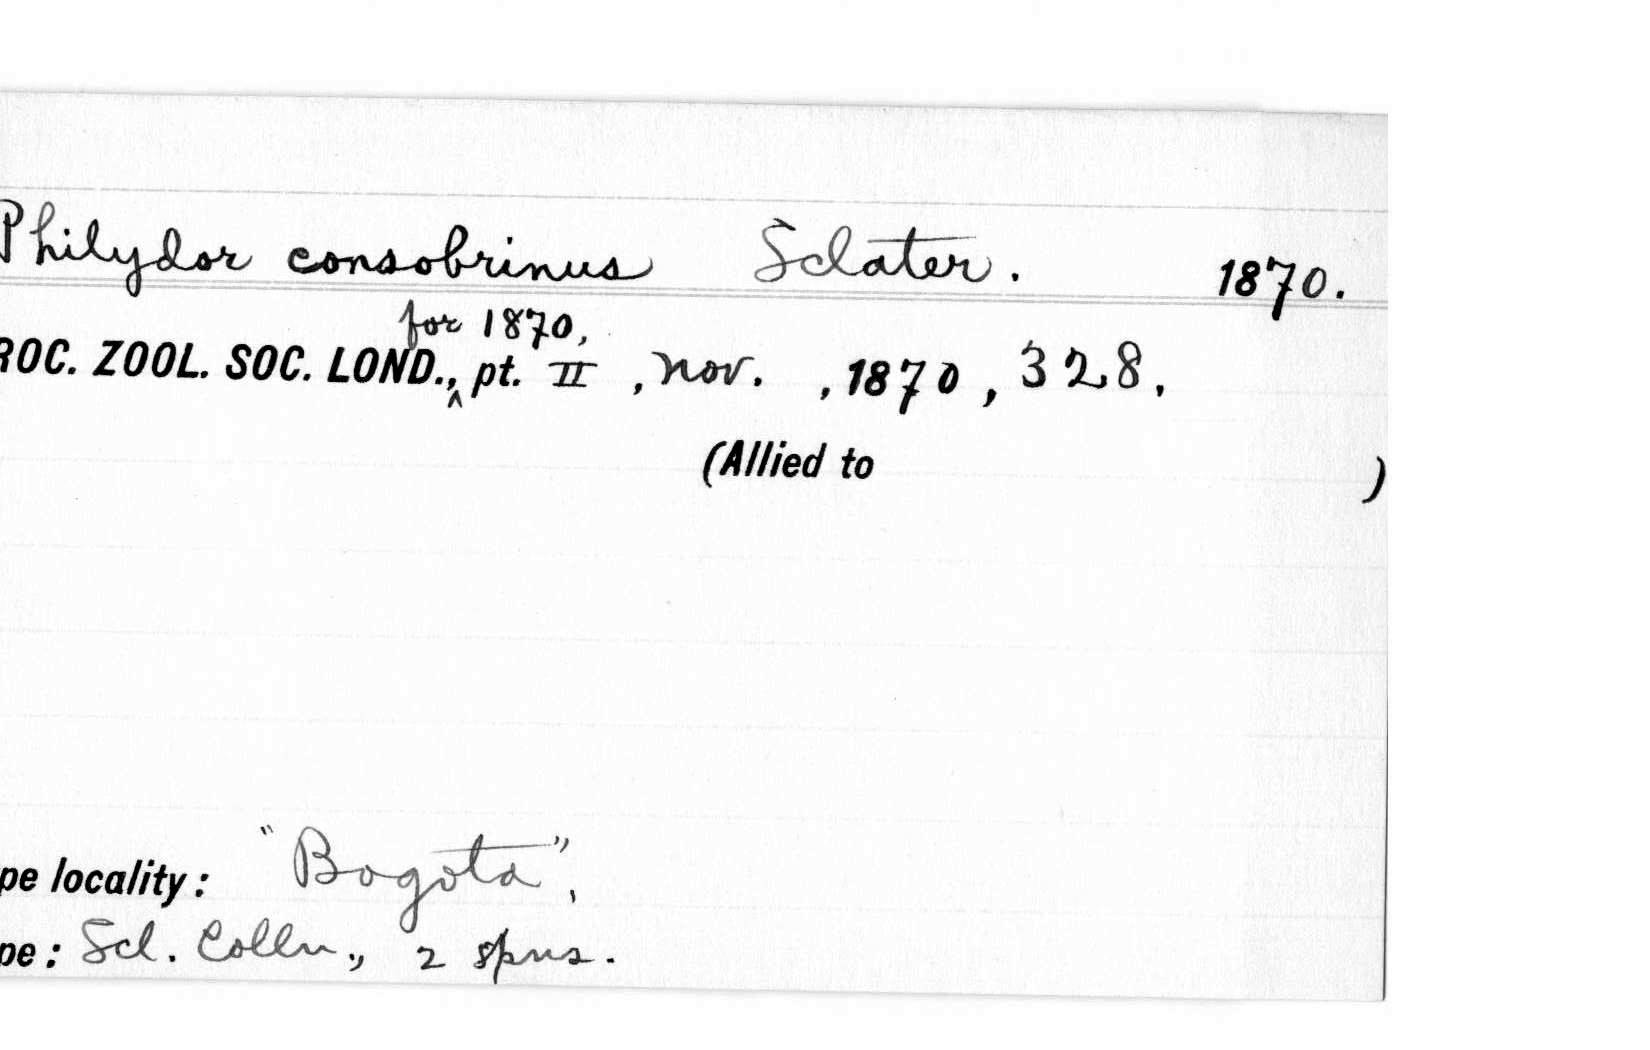 Philydor consobrinus Sclater. 1870.
for 1870,
ROC. ZOOL. SOC. LOND.,^ pt. II , Nov. , 1870 , 328.
(Allied to )
pe locality: "Bogota",
pe: Scl. Colln., 2 spns.